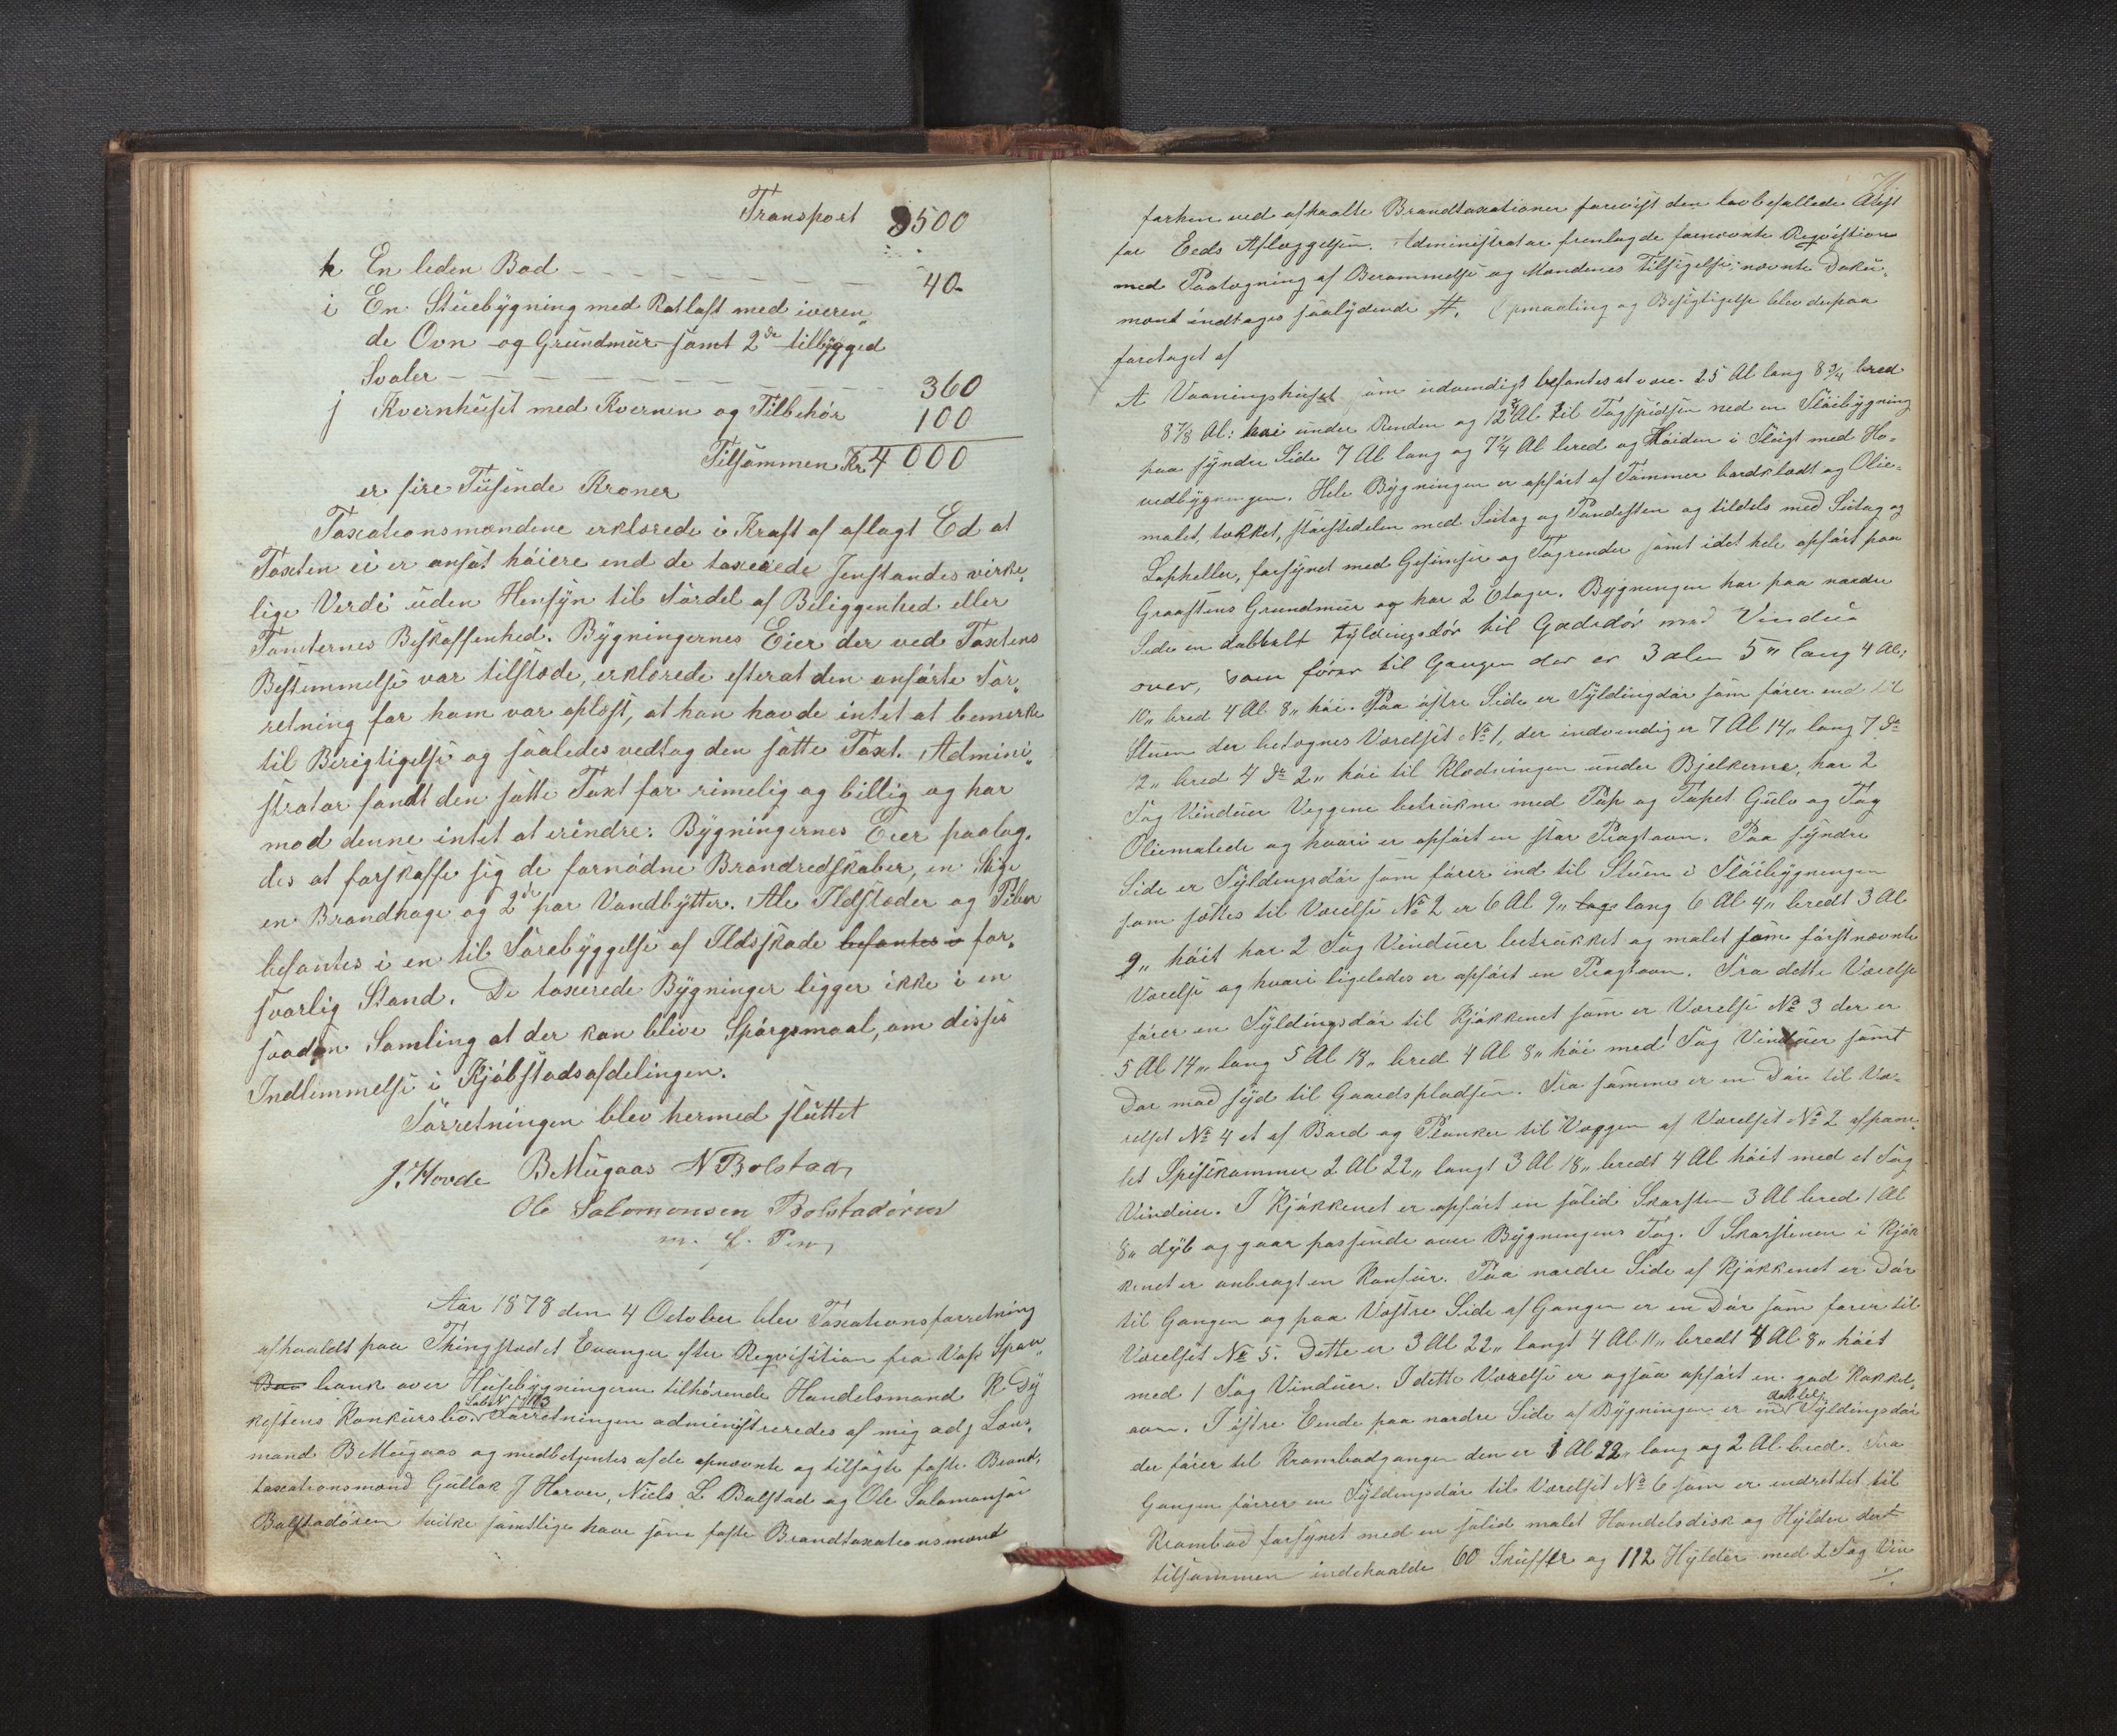 Transport 3500
h En leden Bod - - - - - - - 40-
i En Stuebygning med Ratlaft med iveren„
de Ovn og Grundmur samt 2de tilbygged
Svaler - - - - - - - 360
j Kvernhuset med Kvernen og Tilbehør 100
Tilsammen Kr 4000
er fire Tusinde Kroner
Taxationsmændene erklærede i Kraft af aflagt Ed at
Taxten ei er ansat høiere end de taxerede Jenstandes virke„
lige Verdi uden Hensyn til Fordel af Beliggenhed eller
Tomternes Beskaffenhed. Bygningernes Eier der ved Taxtens
Bestemmelse var tilstæde, erklærede efterat den anførte For„
retning for ham var oplæst, at han havde intet at bemerke
til Berigtigelse og saaledes vedtog den satte Taxt. Admini„
strator fandt den satte Taxt for rimelig og billig og har
mod denne intet at erindre. Bygningernes Eier paalag„
des at forskaffe sig de fornødne Brandredskaber, en Stige
en Brandhage og 2de par Vandbytter. Ale Ildstæder og Piber
befantes i en til Forebyggelse af Ildsskade befantes i for„
svarlig Stand. De taxerede Bygninger ligger ikke i en
saadan Samling at der kan blive Spørgsmaal, om disses
Indlemmelse i Kjøbstadsafdelingen.
Forretningen blev hermed sluttet
J. Hovde B Mugaas N Bolstad
Ole Salomonsen Bolstadøren
m. f. Pen
Aar 1878 den 4 October blev Taxationsforretning
afhaaldt paa Thingstedet Evanger efter Reqvisition fra Vos Spar„
Ban bank over Husebygningerne tilhørende Handelsmand K Dy
kestens Konkursbo. Forretningen administreredes af mig adj Lens„
mand B Mugaas og medbetjentes af de opnævnte og tilsagte faste Brand„
taxationsmænd Gullak J Horvei, Niels L Bolstad og Ole Salamonsen
Bolstadøren hvilke samtlige have som faste Brandtaxationsmænd
71
forhen ved afhaalte Brandtaxationer forevist den lovbefallede Atest
for Eeds Aflæggelsen. Administrator fremlagde fornævnte Reqvistion
med Paategning af Berammelse og Mændenes Tilsigelse; nævnte Doku„
mont indtages saalydende #. Opmaaling og Besigtigelse blev derpaa
foretaget af
A Vaaningshuset som udvendigt befantes at være 25 Al lang 8 3/4 bred
8 7/8 Al: høi under Renden og 12 Al til Tagspidsen ned en Fløibygning
paa syndre Side 7 Al lang og 7 1/4 Al bred og Høiden i Fløigt med Ho„
vedbygningen. Hele Bygningen er opført af Tømmer bordklædt og Olie„
malet, tækket, størstedelen med Sutag og Pandesten og tildels med Sutag og
Lapheller, forsynet med Gesimser og Tagrender samt idet hele opført paa
Graastens Grundmur og har 2 Etager. Bygningen har paa nordre
Side en dobbelt Fyldingsdør til Gadedør med Vindue
over, som fører til Gangen der er 3 alen 5" lang 4 Al:
10„ bred 4 Al 8„ høi. Paa østre Side er Fyldingdør som fører ind til
Stuen der betegnes Værelset No 1, der indvendig er 7 Al 14„ lang 7 do
12„ bred 4 do 2„ høi til Klædningen under Bjelkerne, har 2
Fag Vinduer Veggene betrukne med Pap og Tapet Gulv og Tag
Oliemalede og hvori er opført en stor Pragtovn. Paa syndre
Side er Fyldingsdør som fører ind til Stuen i Fløibygningen
som sættes til Værelse No 2 er 6 Al 9„ lags lang 6 Al 4„ bredt 3 Al
9„ høit har 2 Fag Vinduer betrukket og malet som førstnævnte
Værelse og hvori ligeledes er opført en Pragtovn. Fra dette Værelse
fører en Fyldingsdør til Kjøkkenet som er Værelse No 3 der er
5 Al 14„ lang 5 Al 18„ bred 4 Al 8„ høi med 1 Fag Vinduer samt
Dør mod syd til Gaardspladsen. Fra samme er en Dør til Væ„
relset No 4 et af Bord og Planker til Væggen af Værelset No 2 afpane„
let Spiskammer 2 Al 22„ langt 3 Al 18„ bredt 4 Al høit med et Fag
Vinduer. I Kjøkkenet er opført en solid Skorsten 3 Al bred 1 Al
8„ dyb og gaar passende over Bygningens Tag. I Skorstenen i Kjøk
kenet er anbragt en Komfur. Paa nordre Side af Kjøkkenet er Dør
til Gangen og paa Vestre Side af Gangen er en Dør som fører til
Værelset No 5. Dette er 3 Al 22„ langt 4 Al 11„ bredt 4 Al 8„ høit
med 1 Fag Vinduer. I dette Værelse er ogsaa opført en god Kakkel„
ovn. I østre Ende paa nordre Side af Bygningen er en dobbelt Fyldingsdør
der fører til Krambodgangen den er 1 Al 22„ lang og 2 Al bred. Fra
Gangen fører en Fyldingsdør til Værelset No 6 som er indrettet til
Krambod forsynet med en solid malet Handelsdisk og Hylder dert
tilsammen indehaalde 60 Skuffer og 112 Hylder med 2 Fag Vin
./.